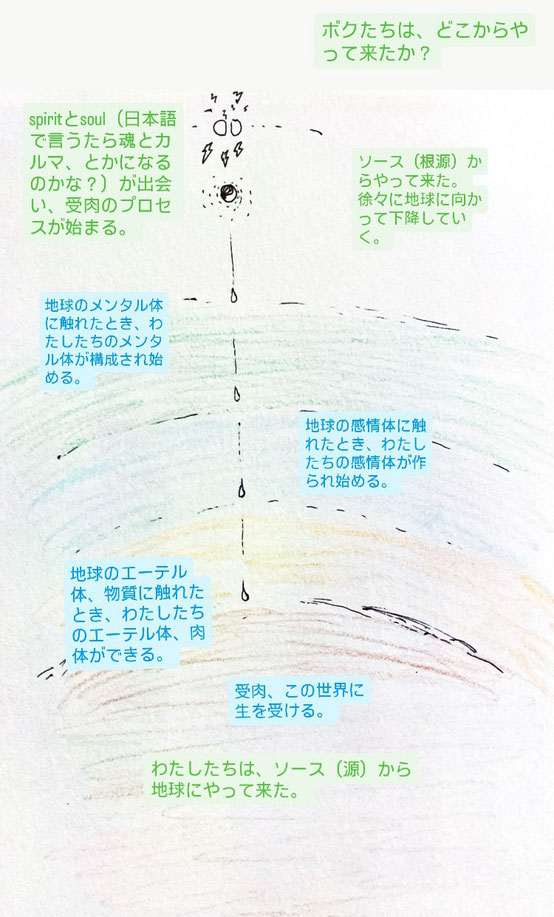 ボクたちは、どこからや
って来たか？
spiritとsoul（日本語
で言うたら魂とカ
ルマ、とかになる
のかな？）が出会
い、受肉のプロセ
スが始まる。
ソース（根源）か
らやって来た。
徐々に地球に向か
って下降してい
く。
地球のメンタル体
に触れたとき、わ
たしたちのメンタ
ル体が構成され始
める。
地球の感情体に触
れたとき、わたし
たちの感情体が作
られ始める。
地球のエーテル
体、物質に触れた
とき、わたしたち
のエーテル体、肉
体ができる。
受肉、この世界に
生を受ける。
わたしたちは、ソース（源）から
地球にやって来た。